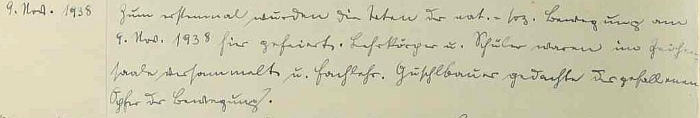 9. Nov. 1938 Zum erstenmal wurden die Toten der nat.-soz. Bewegung am
9. Nov. 1938 hier gefeiert. Lehrkörper u. Schüler waren im Zeichen-
saale versammelt u. Fachlehr. Guschlbauer gedachte der gefallenen
Opfer der Bewegung.